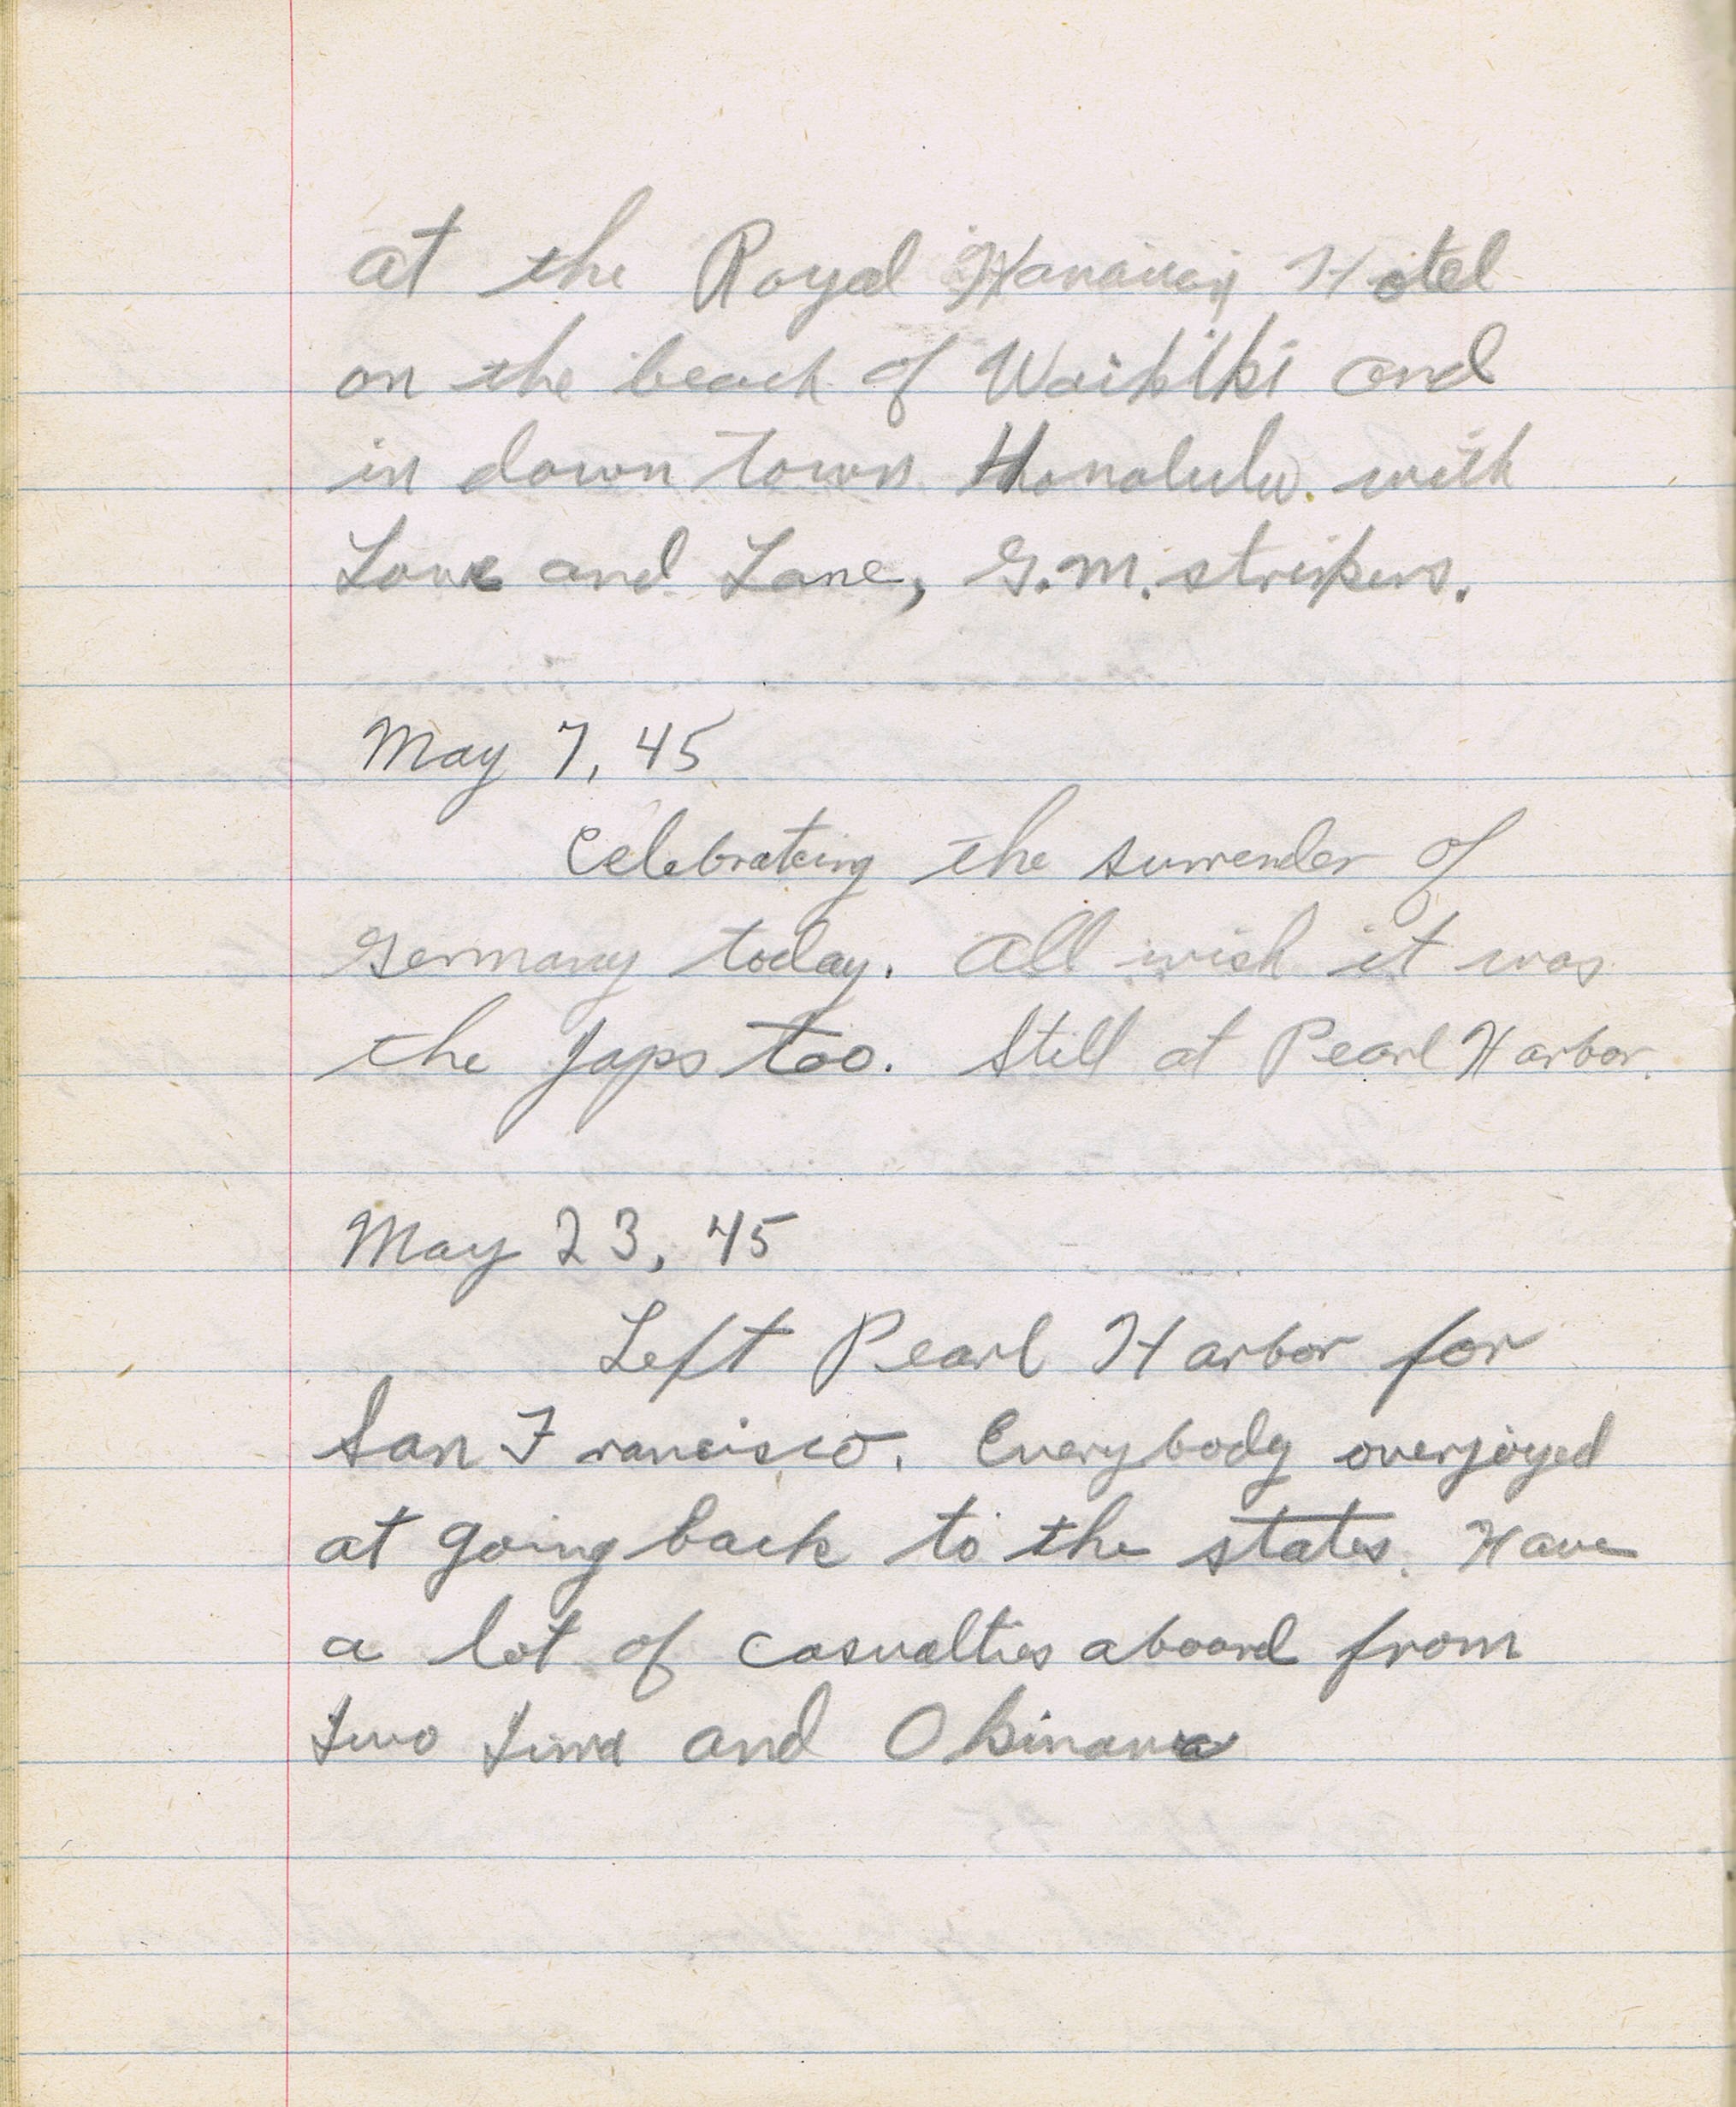 at the Royal Hawaiian Hotel
on the beach of Waikiki and
in down town Honolulu with
Love and Lane, G.M. strikers.
May 7, 45
Celebrating the surrender of
Germany today. All wish it was
the Japs too. Still at Pearl Harbor.
May 23, 45
Left Pearl Harbor for
San Francisco. Everybody overjoyed
at going back to the states. Have
a lot of casualties aboard from
Iwo Jima and Okinawa